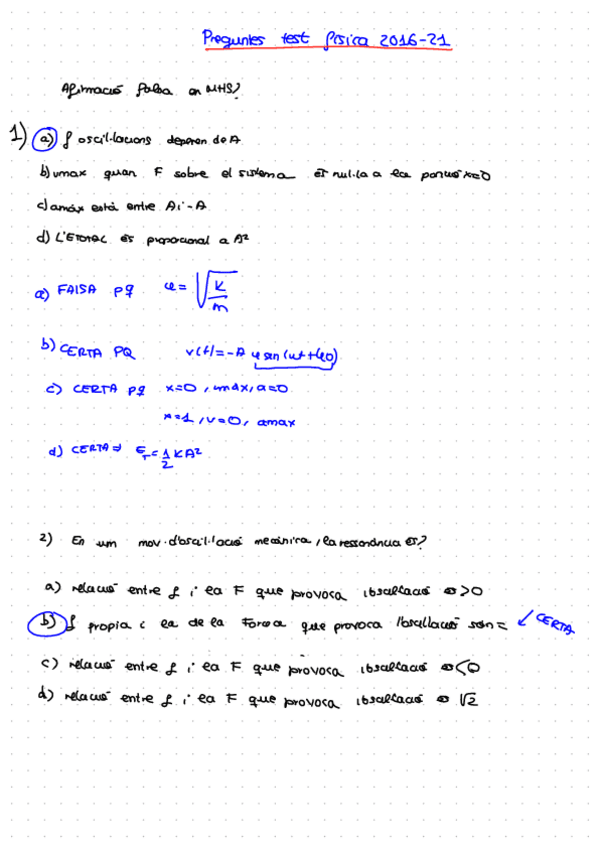 Preguntes test física 2016-21
Afirmació falsa en MHS?
1) a) f oscil·lacions depenen de A
b) vmax quan F sobre el sistema és nul·la a la posició x=0
c) amáx está entre A i -A
d) L'ETOTAL és proporcional a A²
a) FALSA pq φ = √K/m
b) CERTA PQ v(t)=-A φ sen(ωt+φ0)
c) CERTA pq x=0, vmáx, a=0
x=1, v=0, amax
d) CERTA ⇒ ET = 1/2 K A²
2) En un mov. d'oscil·lació mecànica, la ressonància és?
a) relació entre f i la F que provoca l'oscil·lació és >0
b) f propia i la de la Força que provoca l'oscil·lació són = ↙ CERTA
c) relació entre f i la F que provoca l'oscil·lació és <0
d) relació entre f i la F que provoca l'oscil·lació és √2